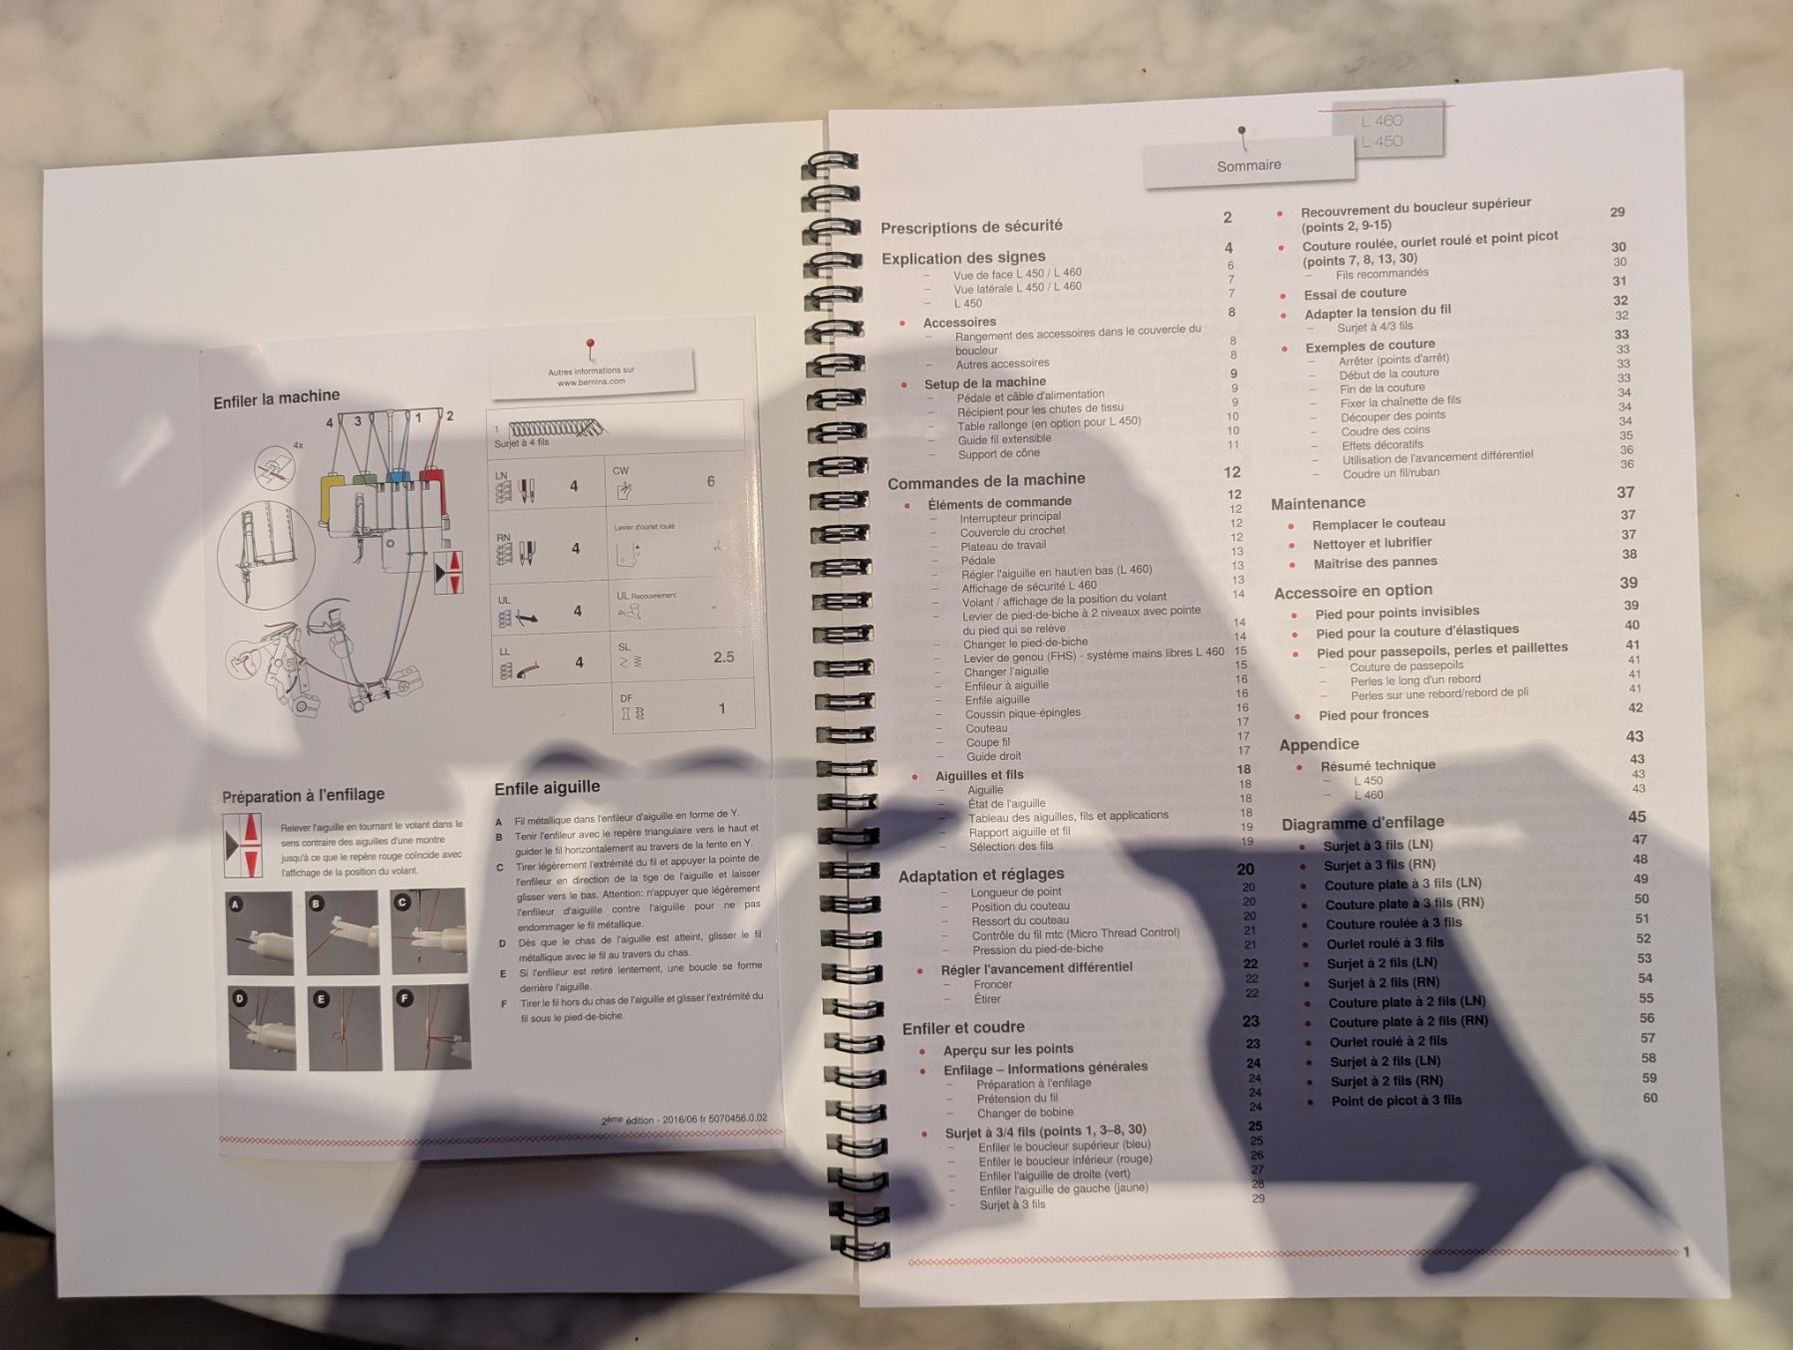 Enfiler la machine
Autres informations sur
www.bernina.com
4 3 1 2
4x
1
Surjet à 4 fils
LN 4 CW 6
RN 4 Levier d'ourlet roulé
UL 4 UL Recouvrement -
LL 4 SL 2.5
DF 1
Préparation à l'enfilage
Relever l'aiguille en tournant le volant dans le
sens contraire des aiguilles d'une montre
jusqu'à ce que le repère rouge coïncide avec
l'affichage de la position du volant.
A B C
D E F
Enfile aiguille
A Fil métallique dans l'enfileur d'aiguille en forme de Y.
B Tenir l'enfileur avec le repère triangulaire vers le haut et
guider le fil horizontalement au travers de la fente en Y.
C Tirer légèrement l'extrémité du fil et appuyer la pointe de
l'enfileur en direction de la tige de l'aiguille et laisser
glisser vers le bas. Attention: n'appuyer que légèrement
l'enfileur d'aiguille contre l'aiguille pour ne pas
endommager le fil métallique.
D Dès que le chas de l'aiguille est atteint, glisser le fil
métallique avec le fil au travers du chas.
E Si l'enfileur est retiré lentement, une boucle se forme
derrière l'aiguille.
F Tirer le fil hors du chas de l'aiguille et glisser l'extrémité du
fil sous le pied-de-biche.
2ème édition - 2016/06 fr 5070456.0.02
L 460
L 450
Sommaire
Prescriptions de sécurité 2
Explication des signes 4
– Vue de face L 450 / L 460 6
– Vue latérale L 450 / L 460 7
– L 450 7
• Accessoires 8
– Rangement des accessoires dans le couvercle du
boucleur 8
– Autres accessoires 8
• Setup de la machine 9
– Pédale et câble d'alimentation 9
– Récipient pour les chutes de tissu 9
– Table rallonge (en option pour L 450) 10
– Guide fil extensible 10
– Support de cône 11
Commandes de la machine 12
• Éléments de commande 12
– Interrupteur principal 12
– Couvercle du crochet 12
– Plateau de travail 12
– Pédale 13
– Régler l'aiguille en haut/en bas (L 460) 13
– Affichage de sécurité L 460 13
– Volant / affichage de la position du volant 14
– Levier de pied-de-biche à 2 niveaux avec pointe
du pied qui se relève 14
– Changer le pied-de-biche 14
– Levier de genou (FHS) - système mains libres L 460 15
– Changer l'aiguille 15
– Enfileur à aiguille 16
– Enfile aiguille 16
– Coussin pique-épingles 16
– Couteau 17
– Coupe fil 17
– Guide droit 17
• Aiguilles et fils 18
– Aiguille 18
– État de l'aiguille 18
– Tableau des aiguilles, fils et applications 18
– Rapport aiguille et fil 19
– Sélection des fils 19
Adaptation et réglages 20
– Longueur de point 20
– Position du couteau 20
– Ressort du couteau 20
– Contrôle du fil mtc (Micro Thread Control) 21
– Pression du pied-de-biche 21
• Régler l'avancement différentiel 22
– Froncer 22
– Étirer 22
Enfiler et coudre 23
• Aperçu sur les points 23
• Enfilage – Informations générales 24
– Préparation à l'enfilage 24
– Prétension du fil 24
– Changer de bobine 24
• Surjet à 3/4 fils (points 1, 3–8, 30) 25
– Enfiler le boucleur supérieur (bleu) 25
– Enfiler le boucleur inférieur (rouge) 26
– Enfiler l'aiguille de droite (vert) 27
– Enfiler l'aiguille de gauche (jaune) 28
– Surjet à 3 fils 29
• Recouvrement du boucleur supérieur
(points 2, 9-15) 29
• Couture roulée, ourlet roulé et point picot
(points 7, 8, 13, 30) 30
– Fils recommandés 30
• Essai de couture 31
• Adapter la tension du fil 32
– Surjet à 4/3 fils 32
• Exemples de couture 33
– Arrêter (points d'arrêt) 33
– Début de la couture 33
– Fin de la couture 33
– Fixer la chaînette de fils 34
– Découper des points 34
– Coudre des coins 34
– Effets décoratifs 35
– Utilisation de l'avancement différentiel 36
– Coudre un fil/ruban 36
Maintenance 37
• Remplacer le couteau 37
• Nettoyer et lubrifier 37
• Maîtrise des pannes 38
Accessoire en option 39
• Pied pour points invisibles 39
• Pied pour la couture d'élastiques 40
• Pied pour passepoils, perles et paillettes 41
– Couture de passepoils 41
– Perles le long d'un rebord 41
– Perles sur une rebord/rebord de pli 41
• Pied pour fronces 42
Appendice 43
• Résumé technique 43
– L 450 43
– L 460 43
Diagramme d'enfilage 45
• Surjet à 3 fils (LN) 47
• Surjet à 3 fils (RN) 48
• Couture plate à 3 fils (LN) 49
• Couture plate à 3 fils (RN) 50
• Couture roulée à 3 fils 51
• Ourlet roulé à 3 fils 52
• Surjet à 2 fils (LN) 53
• Surjet à 2 fils (RN) 54
• Couture plate à 2 fils (LN) 55
• Couture plate à 2 fils (RN) 56
• Ourlet roulé à 2 fils 57
• Surjet à 2 fils (LN) 58
• Surjet à 2 fils (RN) 59
• Point de picot à 3 fils 60
1